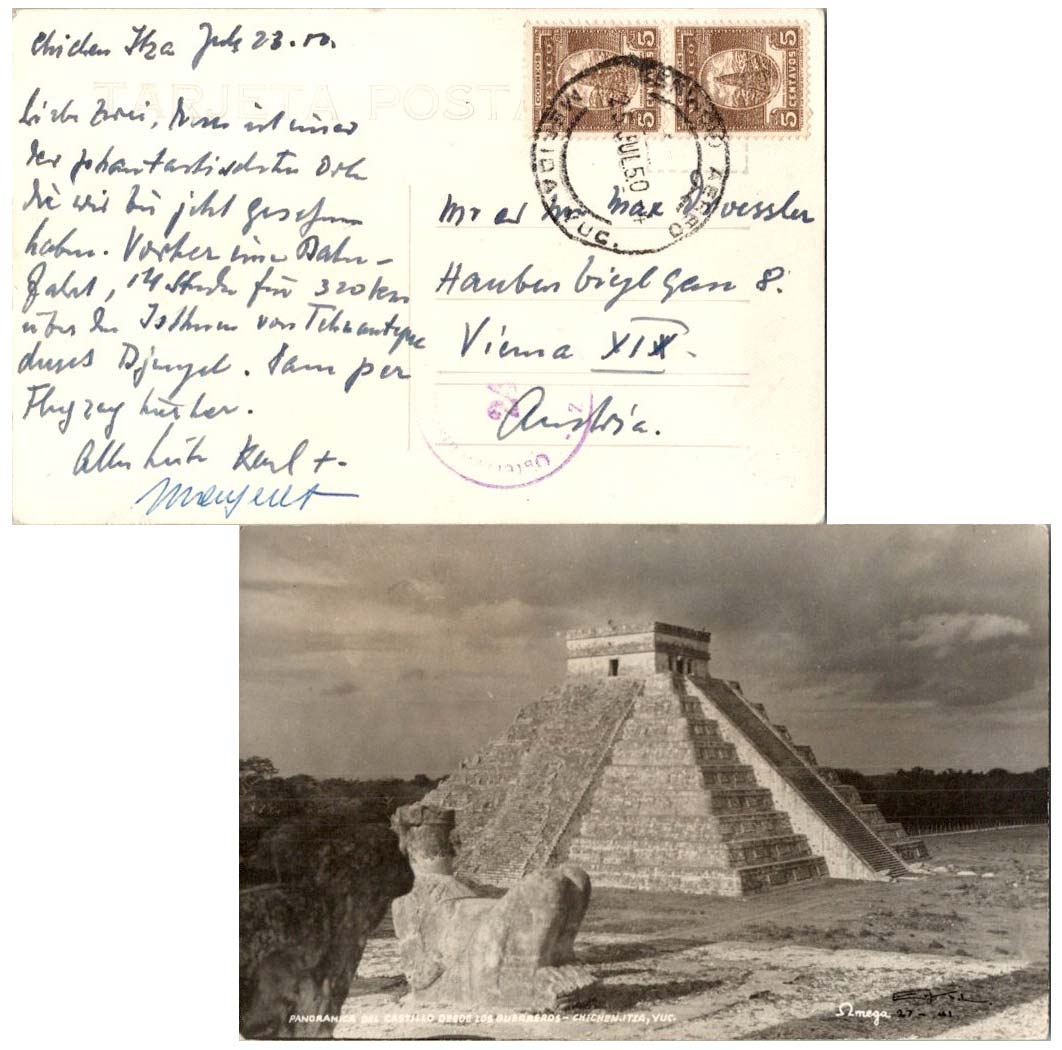 Chichen Itza July 23. 50.
TARJETA POSTAL
Liebe Zwei, dies ist einer
der phantastischsten Orte
die wir bis jetzt gesehen
haben. Vorher eine Bahn-
fahrt, 14 Stunden für 320 km
über den Isthmus von Tehuantepec
durch Djungel. Dann per
Flugzeug hierher.
Alles Liebe Karl +
Margaret
CORREOS MEXICO 5 CENTAVOS 5
CORREOS MEXICO 5 CENTAVOS 5
SERVICIO AEREO
25 JUL. 50
MERIDA, YUC.
Mr and Mrs Max
Gasse 8.
Vienna XIX.
Austria.
PANORAMICA DEL CASTILLO DESDE LOS GUERREROS - CHICHEN-ITZA, YUC.
Ωmega 27 - 41